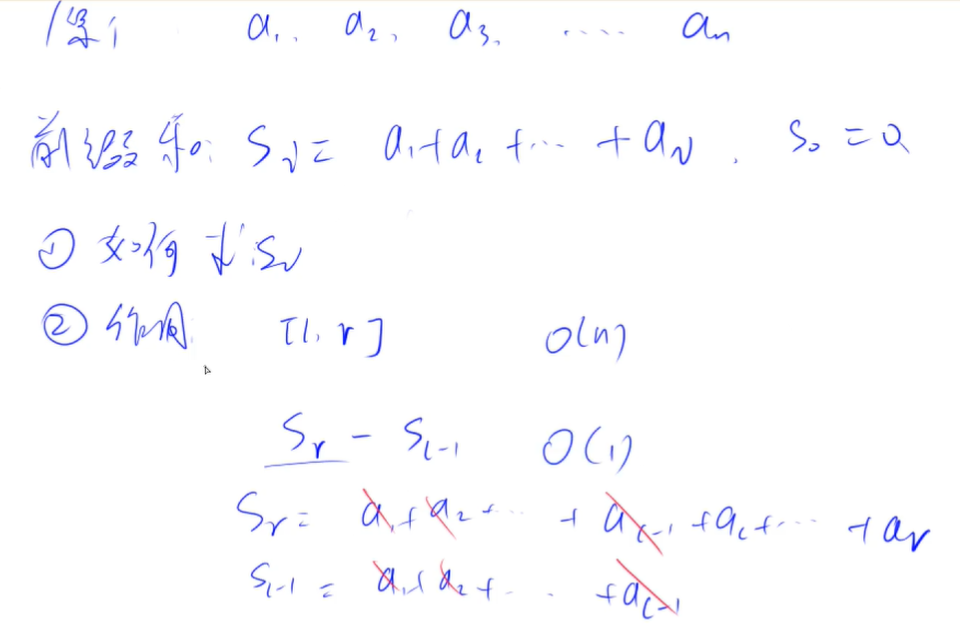 原 a₁, a₂, a₃, ..... aₙ
前缀和: Sᵢ = a₁+a₂+...+aᵢ. S₀=0
① 如何求Sᵢ
② 作用 [l, r] O(n)
Sᵣ - Sₗ₋₁ O(1)
Sᵣ = a₁+a₂+... + aₗ₋₁ +aₗ+... + aᵣ
Sₗ₋₁ = a₁+a₂+... +aₗ₋₁